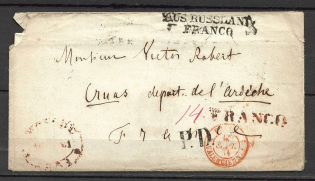 AUS RUSSLAND
FRANCO
Monsieur Victor Robert
Cruas depart. de l'Ardèche
14.
FRANCO
France
P.D.